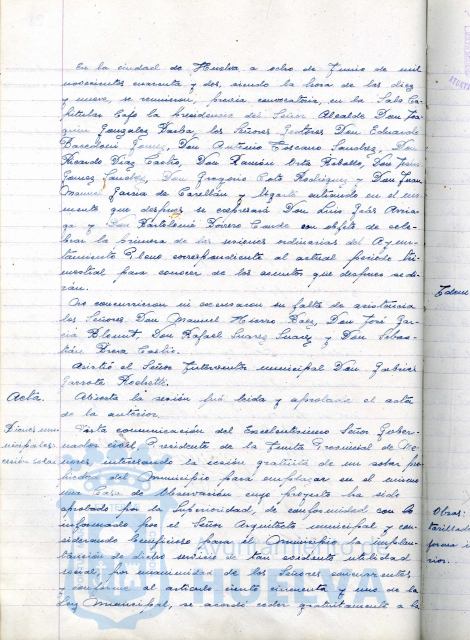 En la ciudad de Huelva a ocho de Junio de mil
novecientos cuarenta y dos, siendo la hora de las diez
y nueve, se reunieron, previa convocatoria, en la Sala Ca-
pitular bajo la presidencia del Señor Alcalde Don Joa-
quin Gonzalez Barba, los Señores Gestores Don Eduardo
Barceloni Gomez, Don Antonio Toscano Sanchez, Don
Ricardo Diaz Castro, Don Ramón Orta Rebollo, Don Jesus
Gomez Sanchez, Don Gregorio Coto Rodriguez y Don Juan
Manuel Garcia de Castellán y Ugarte entrando en el mo-
mento que despues se expresará Don Luis Jaár Arria-
ga y Don Bartolomé Dovero Conde con objeto de cele-
brar la primera de las sesiones ordinarias del Ayun-
tamiento Pleno correspondiente al actual periodo tri-
mestral para conocer de los asuntos que despues se di-
rán.
No concurrieron ni excusaron su falta de asistencia
los Señores Don Manuel Hierro Baez, Don José Gar-
cia Don Rafael Suarez Suarez y Don Sebas-
tián
Asistió el Señor Interventor municipal Don Gabriel
Garrote
Acta.
Abierta la sesión fué leida y aprobada el acta
de la anterior.
Bienes mu-
nicipales:
cesión solar
Vista comunicación del Excelentisimo Señor Gober-
nador civil, Presidente de la Junta Provincial de Me-
nores, interesando la cesión gratuita de un solar pro-
piedad del Municipio para emplazar en el mismo
una Casa de Observación cuyo proyecto ha sido
aprobado por la Superioridad, de conformidad con lo
informado por el Señor Arquitecto municipal y con-
siderando beneficioso para el Municipio la implan-
tación de dicho servicio de tan evidente utilidad
social, por unanimidad de los Señores concurrentes
y conforme al articulo ciento cincuenta y uno de la
Ley Municipal, se acordó ceder gratuitamente a la
Idem
Obras:
Ayuntamiento de
HUELVA